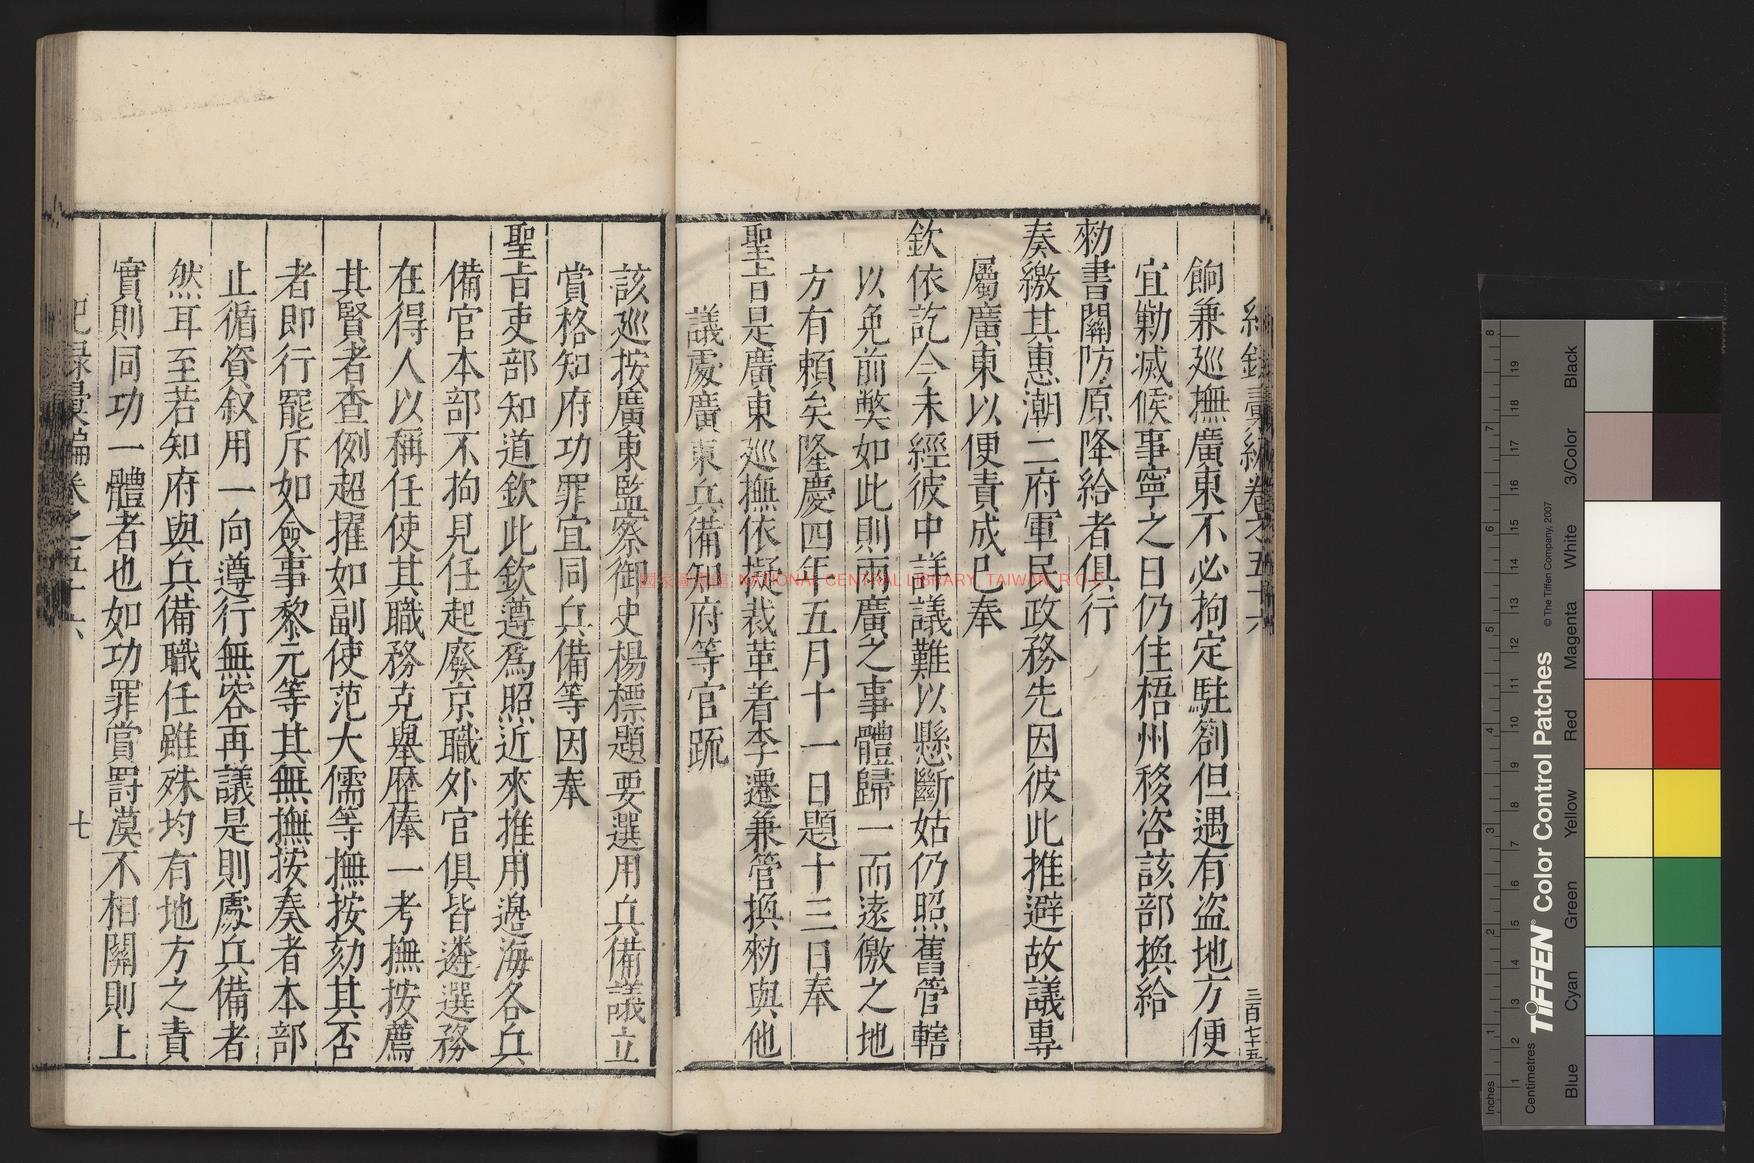 紀錄彙編卷之五十六
三百七十五
餉兼巡撫廣東不必拘定駐劄但遇有盜地方便
宜勦滅候事寧之日仍住梧州移咨該部換給
勑書關防原降給者俱行
奏繳其惠潮二府軍民政務先因彼此推避故議專
屬廣東以便責成已奉
欽依訖今未經彼中詳議難以懸斷姑仍照舊管轄
以免前弊如此則兩廣之事體歸一而遠徼之地
方有賴矣隆慶四年五月十一日題十三日奉
聖旨是廣東巡撫依擬裁革着李遷兼管換勑與他
議處廣東兵備知府等官疏
該巡按廣東監察御史楊標題要選用兵備議立
賞格知府功罪宜同兵備等因奉
聖旨吏部知道欽此欽遵爲照近來推用邊海各兵
備官本部不拘見任起廢京職外官俱皆遴選務
在得人以稱任使其職務克舉歷俸一考撫按薦
其賢者查例超擢如副使范大儒等撫按劾其否
者即行罷斥如僉事黎元等其無撫按奏者本部
止循資叙用一向遵行無容再議是則處兵備者
然耳至若知府與兵備職任雖殊均有地方之責
實則同功一體者也如功罪賞罰漠不相關則上
紀錄彙編卷之五十六
七
國家圖書館 NATIONAL CENTRAL LIBRARY, TAIWAN, R.O.C
Inches
Centimetres
Blue
Cyan
Green
Yellow
Red
Magenta
White
3/Color
Black
TIFFEN® Color Control Patches
© The Tiffen Company, 2007